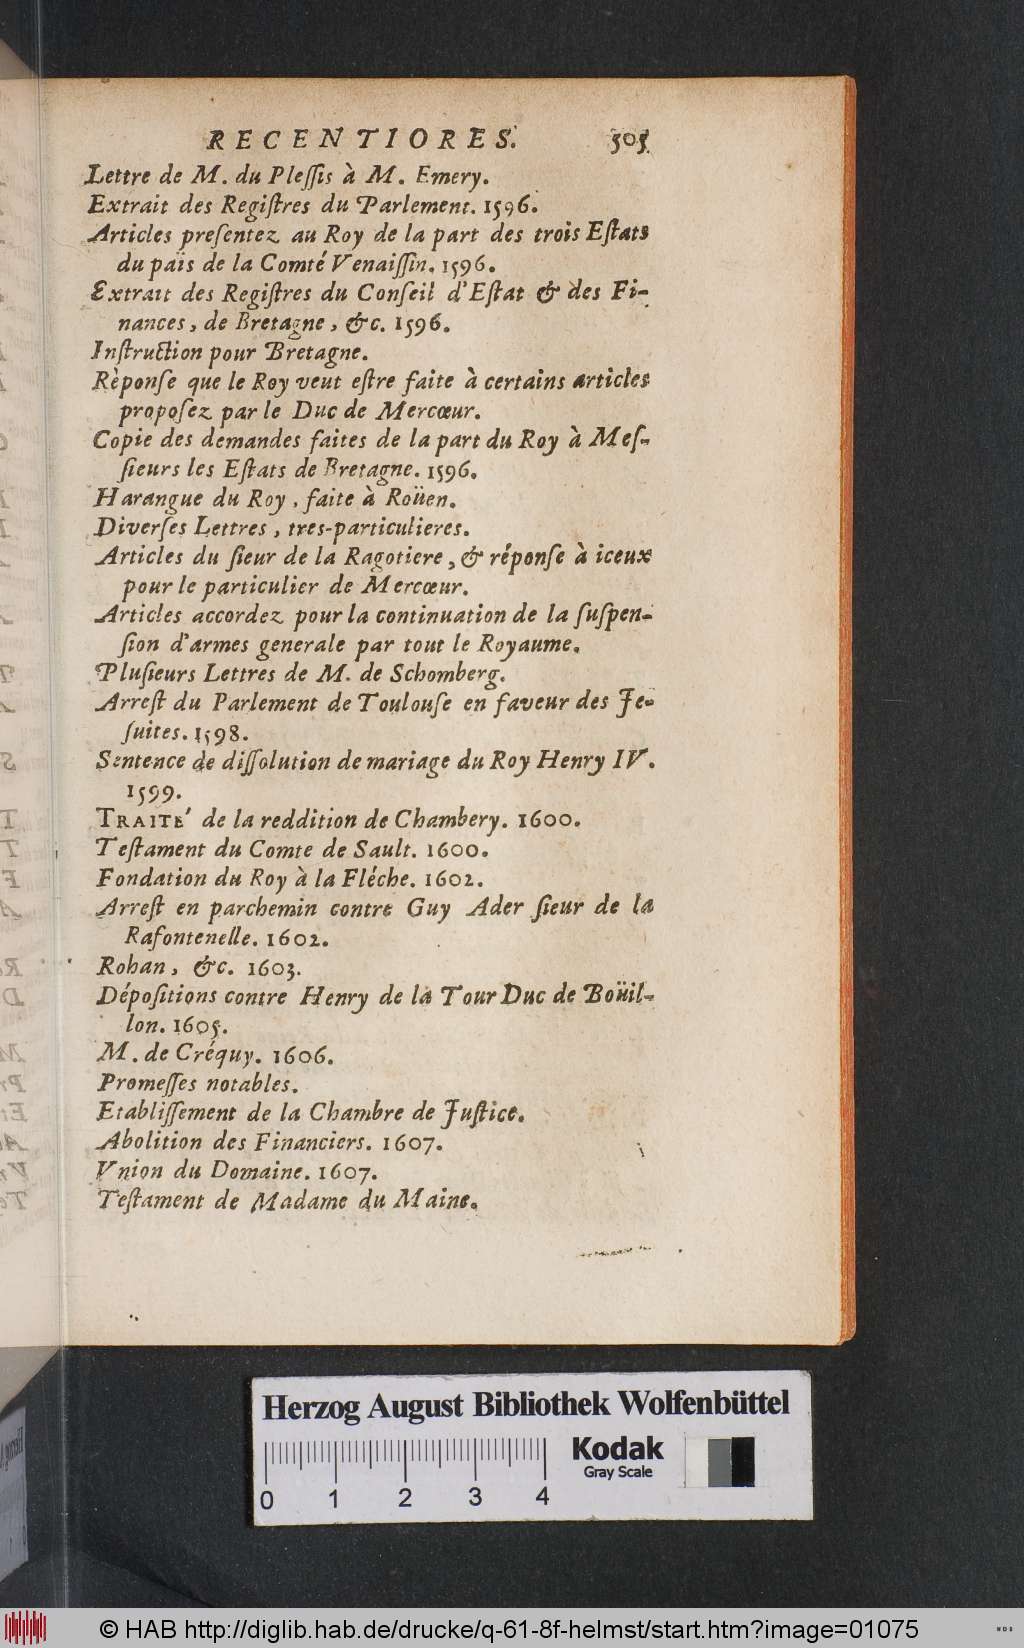 RECENTIORES. 505
Lettre de M. du Pleſſis à M. Emery.
Extrait des Regiſtres du Parlement. 1596.
Articles preſentez au Roy de la part des trois Eſtats
du païs de la Comté Venaiſſin. 1596.
Extrait des Regiſtres du Conſeil d'Eſtat & des Fi-
nances, de Bretagne, &c. 1596.
Inſtruction pour Bretagne.
Rèponſe que le Roy veut eſtre faite à certains articles
propoſez par le Duc de Mercœur.
Copie des demandes faites de la part du Roy à Meſ-
ſieurs les Eſtats de Bretagne. 1596.
Harangue du Roy, faite à Roüen.
Diverſes Lettres, tres-particulieres.
Articles du ſieur de la Ragotiere, & réponſe à iceux
pour le particulier de Mercœur.
Articles accordez pour la continuation de la ſuſpen-
ſion d'armes generale par tout le Royaume.
Pluſieurs Lettres de M. de Schomberg.
Arreſt du Parlement de Toulouſe en faveur des Je-
ſuites. 1598.
Sentence de diſſolution de mariage du Roy Henry IV.
1599.
TRAITE' de la reddition de Chambery. 1600.
Teſtament du Comte de Sault. 1600.
Fondation du Roy à la Fléche. 1602.
Arreſt en parchemin contre Guy Ader ſieur de la
Rafontenelle. 1602.
Rohan, &c. 1603.
Dépoſitions contre Henry de la Tour Duc de Boüil-
lon. 1605.
M. de Créquy. 1606.
Promeſſes notables.
Etabliſſement de la Chambre de Juſtice.
Abolition des Financiers. 1607.
Vnion du Domaine. 1607.
Teſtament de Madame du Maine.
Herzog August Bibliothek Wolfenbüttel
Kodak
Gray Scale
0 1 2 3 4
© HAB http://diglib.hab.de/drucke/q-61-8f-helmst/start.htm?image=01075